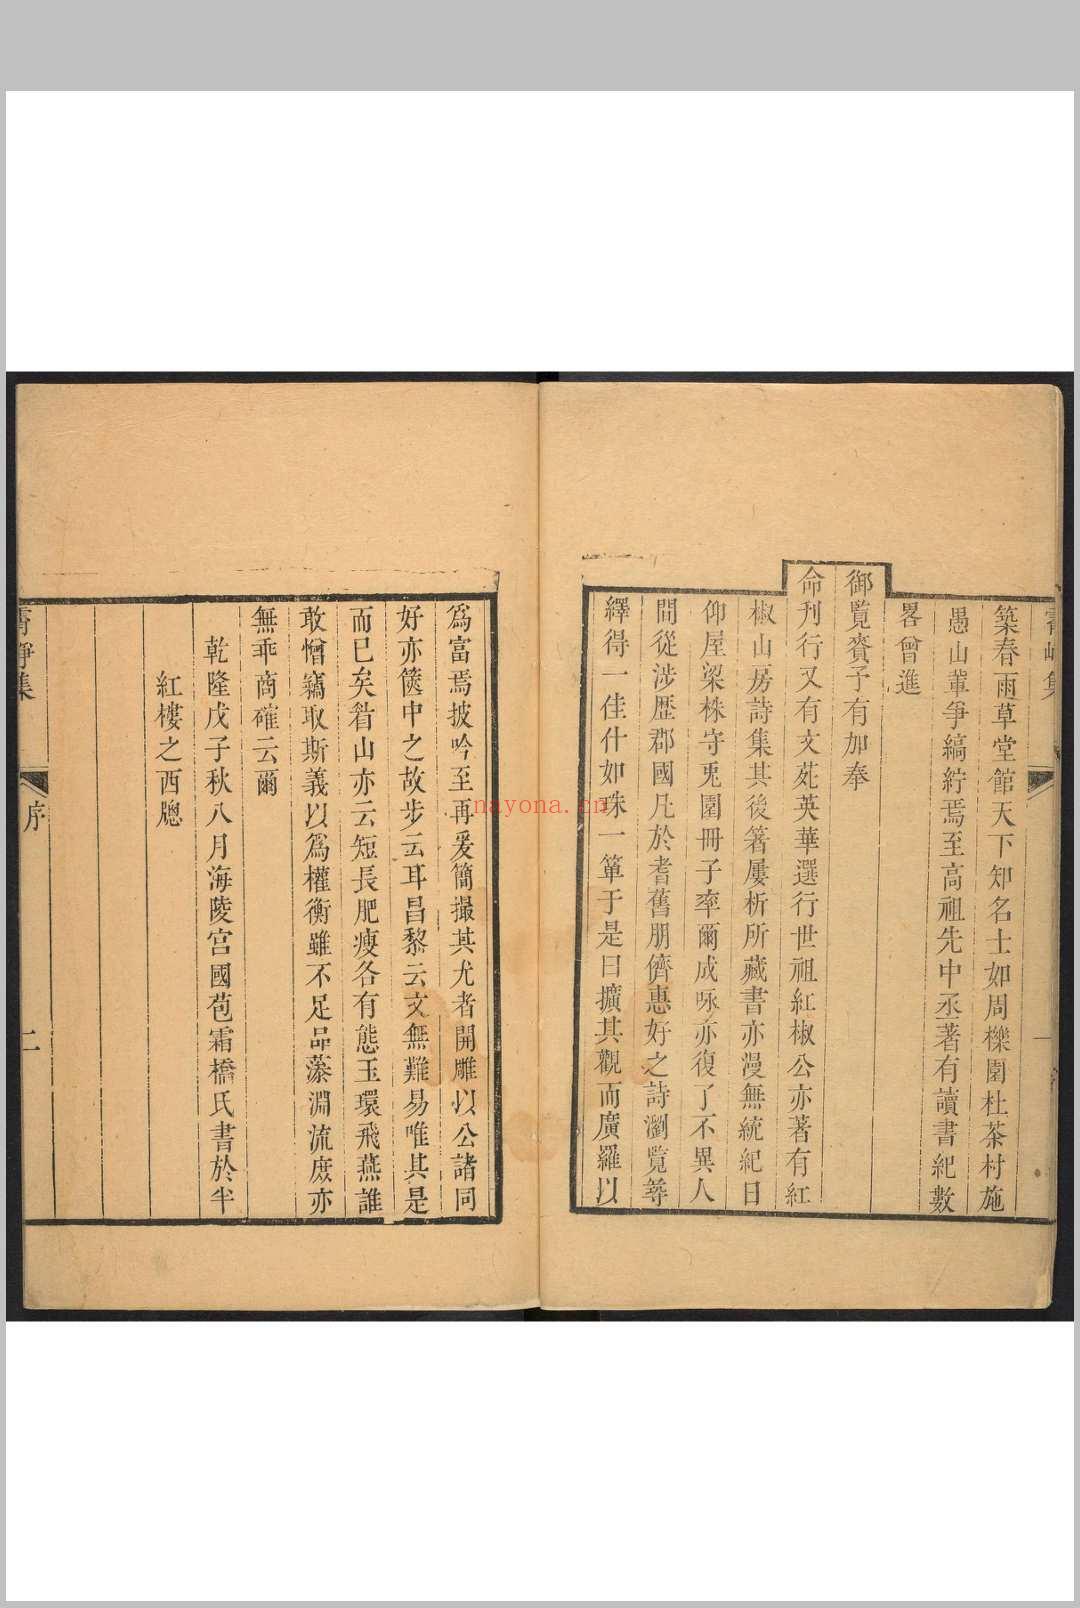 築春雨草堂館天下知名士如周櫟園杜茶村施
愚山輩爭縞紵焉至高祖先中丞著有讀書紀數
畧曾進
御覽賚予有加奉
命刊行又有文苑英華選行世祖紅椒公亦著有紅
椒山房詩集其後箸屢析所藏書亦漫無統紀日
仰屋梁株守兎園冊子率爾成咏亦復了不異人
間從涉歷郡國凡於耆舊朋儕惠好之詩瀏覽尋
繹得一佳什如珠一簞于是日擴其觀而廣羅以
爲富焉披吟至再爰簡撮其尤者開雕以公諸同
好亦篋中之故步云耳昌黎云文無難易唯其是
而已矣眉山亦云短長肥瘦各有態玉環飛燕誰
敢憎竊取斯義以爲權衡雖不足品藻淵流庶亦
無乖商確云爾
乾隆戊子秋八月海陵宮國苞霜橋氏書於半
紅樓之西牕
序
二
nayona.cn